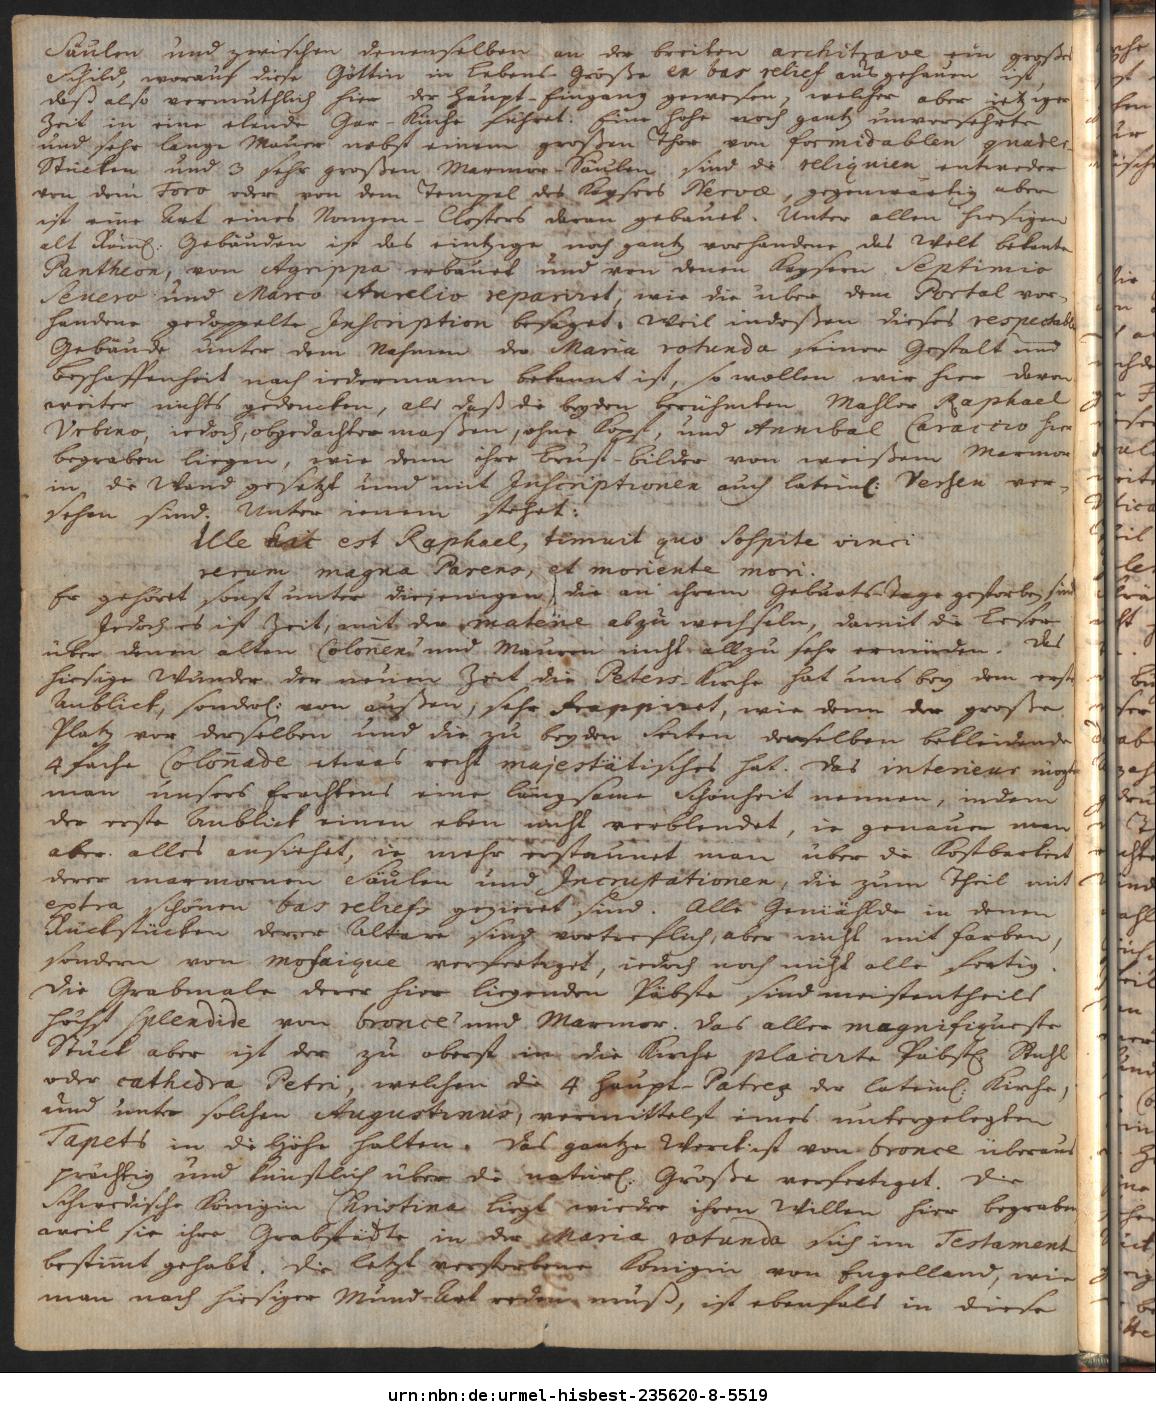 Säulen und zwischen denenselben an der breiten architrave ein großes
Schild, worauf diese Göttin in Lebens-Größe en bas relief ausgehauen ist,
daß also vermuthlich hier der Haupt-Eingang gewesen, welcher aber ietziger
Zeit in eine elende Gar-Küche führet. Eine hohe noch gantz unversehrte
und sehr lange Mauer nebst einem großen Thor von formidablen quader
Stücken und 3 sehr großen Marmor-Säulen sind die reliquien entweder
von dem Foro oder von dem Tempel des Kaysers Nervae, gegenwärtig aber
ist eine Art eines Nonnen-Closters daran gebauet. Unter allen hiesigen
alt Röml: Gebäuden ist das eintzige noch gantz vorhandene das Welt bekante
Pantheon, von Agrippa erbauet und von denen Kaysern Septimio
Severo und Marco Aurelio repariret, wie die über dem Portal vor-
handene gedoppelte Inscription besaget. Weil indeßen dieses respectable
Gebäude unter dem Nahmen der Maria rotunda seiner Gestalt und
Beschaffenheit nach iedermann bekannt ist, so wollen wir hier davon
weiter nichts gedencken, als daß die beyden berühmten Mahler Raphael
Urbino, iedoch, obgedachter maßen, ohne Kopf, und Annibal Caraccio hier
begraben liegen, wie denn ihre Brust-bilder von weißem Marmor
in die Wand gesetzt und mit Inscriptionen auch lateinl: Versen ver-
sehen sind. Unter ienem stehet:
Ille hic est Raphael, timuit quo Sospite vinci
rerum magna Parens, et moriente mori.
Er gehöret sonst unter diejenigen, die an ihrem Geburts-Tage gestorben sind
Jedoch es ist Zeit, mit der materie abzuwechseln, damit die Leser
über denen alten Colonnen und Mauren nicht allzu sehr ermüden. Das
hiesige Wunder der neuen Zeit die Peters-Kirche hat uns bey dem erste
Anblick, sonderl: von außen, sehr frappiret, wie denn der große
Platz vor derselben und die zu beyden Seiten denselben bekleidende
4fache Colonnade etwas recht majestätisches hat. Das interieur mögte
man unsers Erachtens eine langsame Schönheit nennen, indem
der erste Anblick einen eben nicht verblendet, ie genauer man
aber alles ansiehet, ie mehr erstaunet man über die Kostbarkeit
derer marmornen Säulen und Incrustationen, die zum Theil mit
extra schönen bas reliefs gezieret sind. Alle Gemählde in denen
Rückstücken derer Altare sind vortreflich, aber nicht mit Farben,
sondern von mosaique verfertiget, iedoch noch nicht alle fertig.
Die Grabmale derer hier liegenden Päbste sind meistentheils
höchst splendide von bronce und Marmor. Das aller magnifiqueste
Stück aber ist der zu oberst in die Kirche placirte Päbstl: Stuhl
oder cathedra Petri, welchen die 4 Haupt-Patres der lateinl: Kirche,
und unter solchen Augustinus, vermittelst eines untergelegten
Tapets in die Höhe halten. Das gantze Werck ist von bronce überaus
prächtig und künstlich über die natürl: Größe verfertiget. Die
Schwedische Königin Christina liegt wieder ihren Willen hier begraben
weil sie ihre Grabstädte in der Maria rotunda sich im Testament
bestimt gehabt. Die letzt verstorbene Königin von Engelland, wie
man nach hiesiger Mund-Art reden muß, ist ebenfals in diese
urn:nbn:de:urmel-hisbest-235620-8-5519